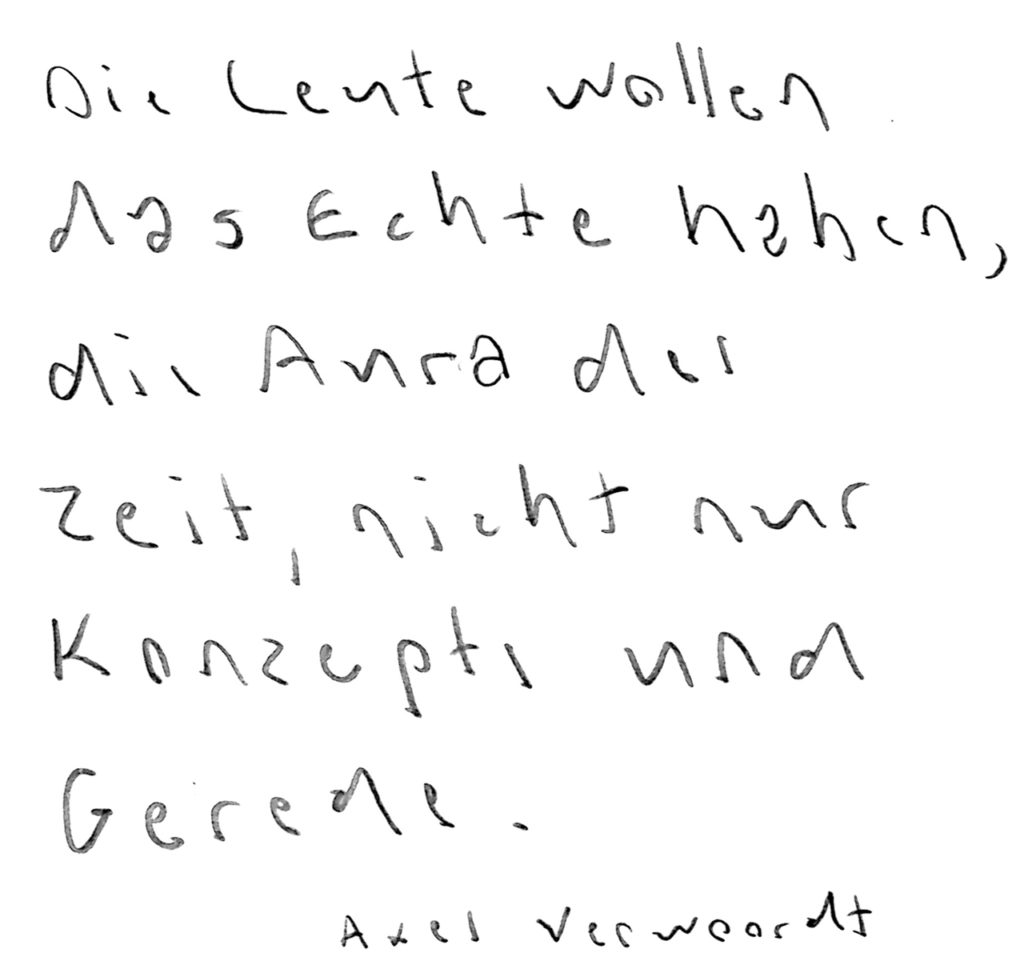 Die Leute wollen
das Echte haben,
die Aura der
Zeit, nicht nur
Konzepte und
Gerede.
Axel Vervoordt